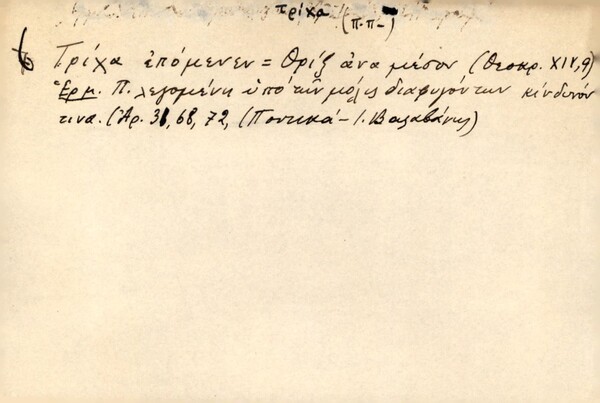 τρίχα
(π.π-)
Τρίχα ἐπόμενεν = Θρίξ ἀνα μέσον (Θεοκρ. XIV, 9)
Ἑρμ. Π. λεγομένη ὑπό τῶν μόλις διαφυγόντων κίνδυνόν
τινα. (Ἀρ. 31, 68, 72, (Ποντικά - Ι. Βαλαβάνης)